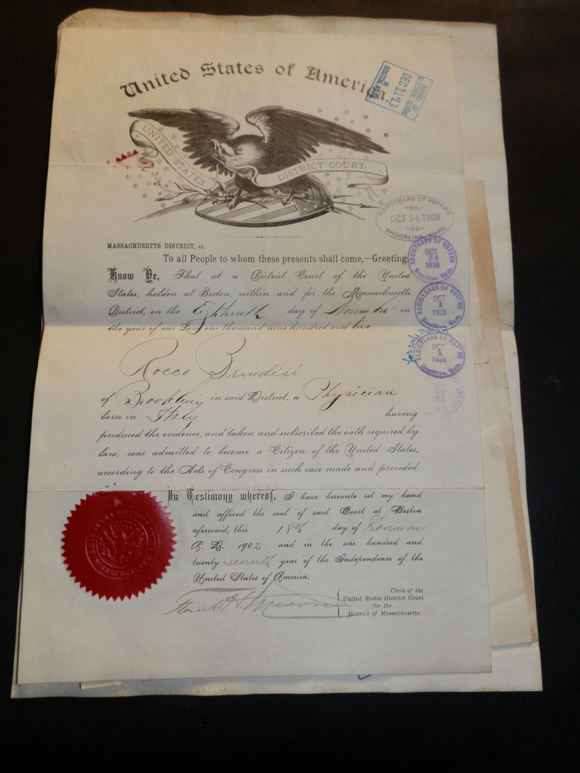 United States of America.
UNITED STATES DISTRICT COURT.
DEC 11 13
REGISTRARS OF VOTERS
OCT 14 1908
BROOKLINE, MASS.
MASSACHUSETTS DISTRICT, ss.
To all People to whom these presents shall come,—Greeting:
REGISTRARS OF VOTERS
OCT
24
1916
Brookline, Mass.
Know Ye, That at a District Court of the United
States, holden at Boston, within and for the Massachusetts
District, on the Eighteenth day of in
REGISTRARS OF VOTERS
OCT
1
1928
Brookline, Mass.
the year of our Lord one thousand nine hundred and two
REGISTRARS OF VOTERS
OCT
1
Brookline, Mass.
Rocco Brindisi
of Brookline in said District, a Physician
born in Italy having
produced the evidence, and taken and subscribed the oath required by
law, was admitted to become a Citizen of the United States,
according to the Acts of Congress in such case made and provided.
In Testimony whereof, I have hereunto set my hand
and affixed the seal of said Court at Boston
aforesaid, this 18th day of
A. D. 1902 and in the one hundred and
twenty seventh year of the Independence of the
United States of America.
Clerk of the
United States District Court
for the
District of Massachusetts.